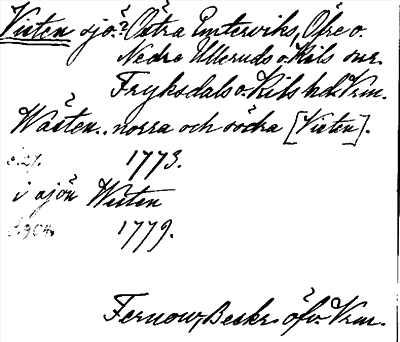 Visten sjö? Östra Emtervik, Öfre o.
Nedre Ulleruds o. Kils snr.
Fryksdals o. Kils hd. Vrm.
Wästen.. norra och södra [Visten].
s. 27. 1773.
i sjön Wisten
s. 904. 1779.
Fernow, Beskr. öfv. Vrm.